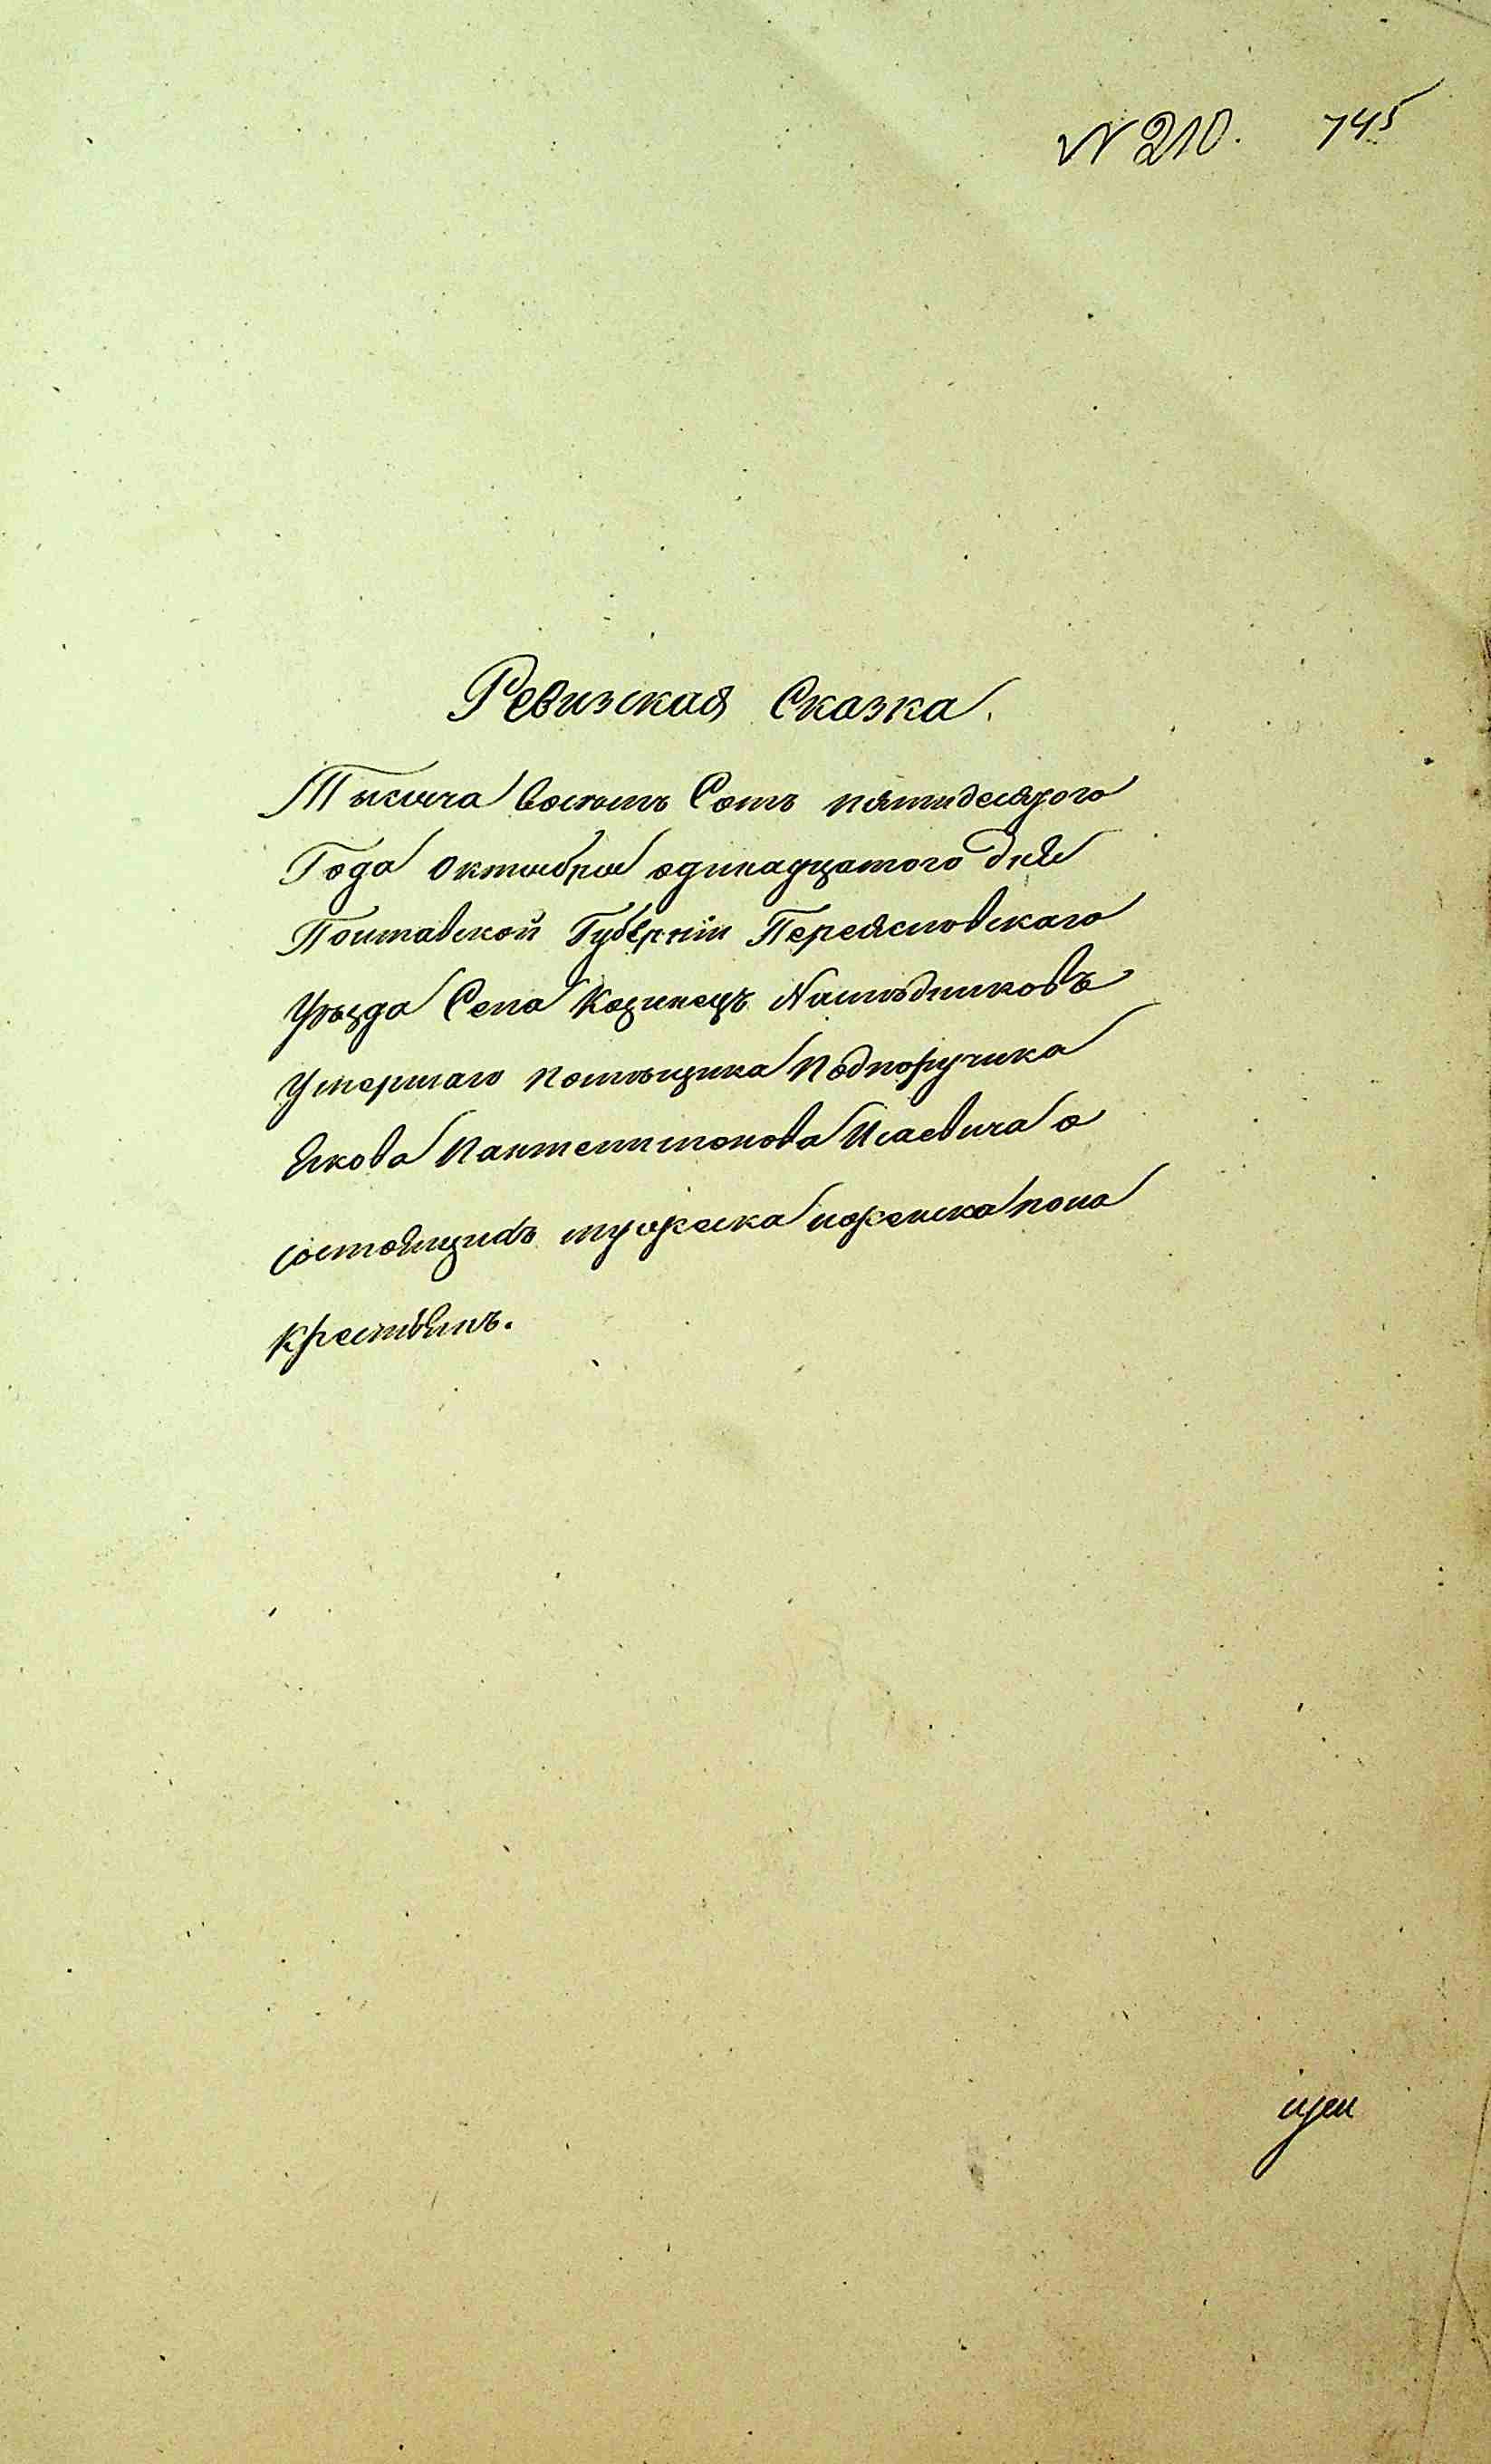 № 210. 745
Ревизская Сказка.
Тысяча восемь Сотъ пятидесятого
Года октября одинадцатого дня
Полтавской Губерніи Переясловскаго
уѣзда Села Козинецъ Наслѣдниковъ
умершаго помѣщика Подпоручика
Якова Пантелимонова Исаевича о
состоящихъ мужеска ижениска пола
крестьянъ.